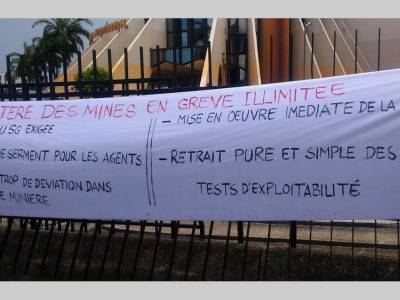 TERE DES MINES EN GREVE ILLIMITEE
U SG EXIGEE
E SERMENT POUR LES AGENTS
TROP DE DEVIATION DANS
E MINIERE
- MISE EN OEUVRE IMEDIATE DE LA
- RETRAIT PURE ET SIMPLE DES
TESTS D'EXPLOITABILITÉ